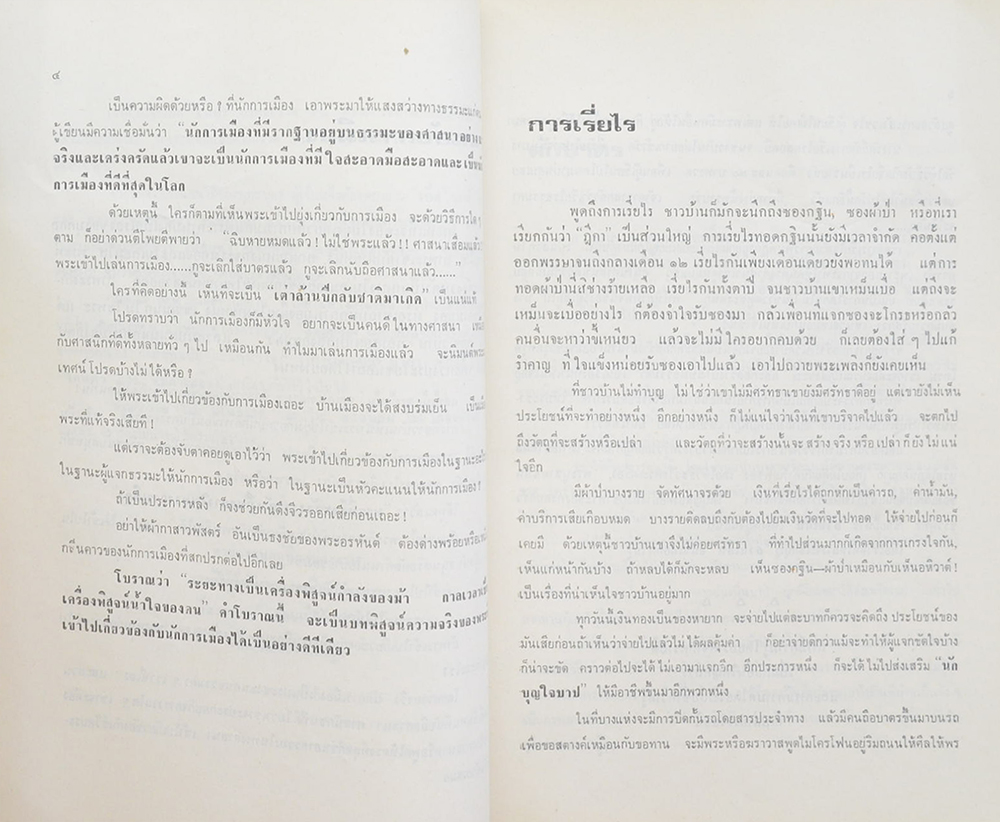 ๔
เป็นความผิดด้วยหรือ ? ที่นักการเมือง เอาพระมาให้แสงสว่างทางธรรมะแก่
ผู้เขียนมีความเชื่อมั่นว่า “นักการเมืองที่มีรากฐานอยู่บนธรรมะของศาสนาอย่าง
จริงและเคร่งครัดแล้วเขาจะเป็นนักการเมืองที่มีใจสะอาดมือสะอาดและ
การเมืองที่ดีที่สุดในโลก
ด้วยเหตุนี้ ใครก็ตามที่เห็นพระเข้าไปยุ่งเกี่ยวกับการเมือง จะด้วยวิธีการใด ๆ
ตาม ก็อย่าด่วนตีโพยตีพายว่า “ฉิบหายหมดแล้ว ! ไม่ใช่พระแล้ว ! ! ศาสนาเสื่อมแล้ว
พระเข้าไปเล่นการเมือง......กูจะเลิกใส่บาตรแล้ว กูจะเลิกนับถือศาสนาแล้ว......”
ใครที่คิดอย่างนี้ เห็นทีจะเป็น “เต่าล้านปีกลับชาติมาเกิด” เป็นแน่แท้
โปรดทราบว่า นักการเมืองก็มีหัวใจ อยากจะเป็นคนดีในทางศาสนา
กับศาสนิกที่ดีทั้งหลายทั่ว ๆ ไป เหมือนกัน ทำไมมาเล่นการเมืองแล้ว จะนิมนต์พระ
เทศน์โปรดบ้างไม่ได้หรือ ?
ให้พระเข้าไปเกี่ยวข้องกับการเมืองเถอะ บ้านเมืองจะได้สงบร่มเย็น
พระที่แท้จริงเสียที !
แต่เราจะต้องจับตาคอยดูเอาไว้ว่า พระเข้าไปเกี่ยวข้องกับการเมืองในฐานะ
ในฐานะผู้แจกธรรมะให้นักการเมือง หรือว่า ในฐานะเป็นหัวคะแนนให้นักการเมือง !
ถ้าเป็นประการหลัง ก็จงช่วยกันดึงจีวรออกเสียก่อนเถอะ !
อย่าให้ผ้ากาสาวพัสตร์ อันเป็นธงชัยของพระอรหันต์ ต้องด่างพร้อยหรือ
กลิ่นคาวของนักการเมืองที่สกปรกต่อไปอีกเลย
โบราณว่า “ระยะทางเป็นเครื่องพิสูจน์กำลังของม้า กาลเวลา
เครื่องพิสูจน์น้ำใจของคน” คำโบราณนี้ จะเป็นบทพิสูจน์ความจริงของพระ
เข้าไปเกี่ยวข้องกับนักการเมืองได้เป็นอย่างดีทีเดียว
การเรี่ยไร
พูดถึงการเรี่ยไร ชาวบ้านก็มักจะนึกถึงซองกฐิน, ซองผ้าป่า หรือที่เรา
เรียกกันว่า “ฎีกา” เป็นส่วนใหญ่ การเรี่ยไรทอดกฐินนั้นยังมีเวลาจำกัด คือตั้งแต่
ออกพรรษาจนถึงกลางเดือน ๑๒ เรี่ยไรกันเพียงเดือนเดียวยังพอทนได้ แต่การ
ทอดผ้าป่านี่สิช่างร้ายเหลือ เรี่ยไรกันทั้งตาปี จนชาวบ้านเขาเหม็นเบื่อ แต่ถึงจะ
เหม็นจะเบื่ออย่างไร ก็ต้องจำใจรับซองมา กลัวเพื่อนที่แจกซองจะโกรธหรือกลัว
คนอื่นจะหาว่าขี้เหนียว แล้วจะไม่มีใครอยากคบด้วย ก็เลยต้องใส่ ๆ ไปแก้
รำคาญ ที่ใจแข็งหน่อยรับซองเอาไปแล้ว เอาไปถวายพระเพลิงก็ยังเคยเห็น
ที่ชาวบ้านไม่ทำบุญ ไม่ใช่ว่าเขาไม่มีศรัทธาเขายังมีศรัทธาดีอยู่ แต่เขายังไม่เห็น
ประโยชน์ที่จะทำอย่างหนึ่ง อีกอย่างหนึ่ง ก็ไม่แน่ใจว่าเงินที่เขาบริจาคไปแล้ว จะตกไป
ถึงวัตถุที่จะสร้างหรือเปล่า และวัตถุที่ว่าจะสร้างนั้นจะสร้างจริงหรือเปล่าก็ยังไม่แน่
ใจอีก
มีผ้าป่าบางราย จัดทัศนาจรด้วย เงินที่เรี่ยไรได้ถูกหักเป็นค่ารถ, ค่าน้ำมัน,
ค่าบริการเสียเกือบหมด บางรายติดลบถึงกับต้องไปยืมเงินวัดที่จะไปทอด ให้จ่ายไปก่อนก็
เคยมี ด้วยเหตุนี้ชาวบ้านเขาจึงไม่ค่อยศรัทธา ที่ทำไปส่วนมากก็เกิดจากการเกรงใจกัน,
เห็นแก่หน้ากันบ้าง ถ้าหลบได้ก็มักจะหลบ เห็นซองกฐิน—ผ้าป่าเหมือนกับเห็นอหิวาต์ !
เป็นเรื่องที่น่าเห็นใจชาวบ้านอยู่มาก
ทุกวันนี้เงินทองเป็นของหายาก จะจ่ายไปแต่ละบาทก็ควรจะคิดถึงประโยชน์ของ
มันเสียก่อนถ้าเห็นว่าจ่ายไปแล้วไม่ได้ผลคุ้มค่า ก็อย่าจ่ายดีกว่าแม้จะทำให้ผู้แจกขัดใจบ้าง
ก็น่าจะขัด คราวต่อไปจะได้ไม่เอามาแจกอีก อีกประการหนึ่ง ก็จะได้ไม่ไปส่งเสริม “นัก
บุญใจบาป” ให้มีอาชีพขึ้นมาอีกพวกหนึ่ง
ในที่บางแห่งจะมีการปิดกั้นรถโดยสารประจำทาง แล้วมีคนถือบาตรขึ้นมาบนรถ
เพื่อขอสตางค์เหมือนกับขอทาน จะมีพระหรือฆราวาสพูดไมโครโฟนอยู่ริมถนนให้ศีลให้พร